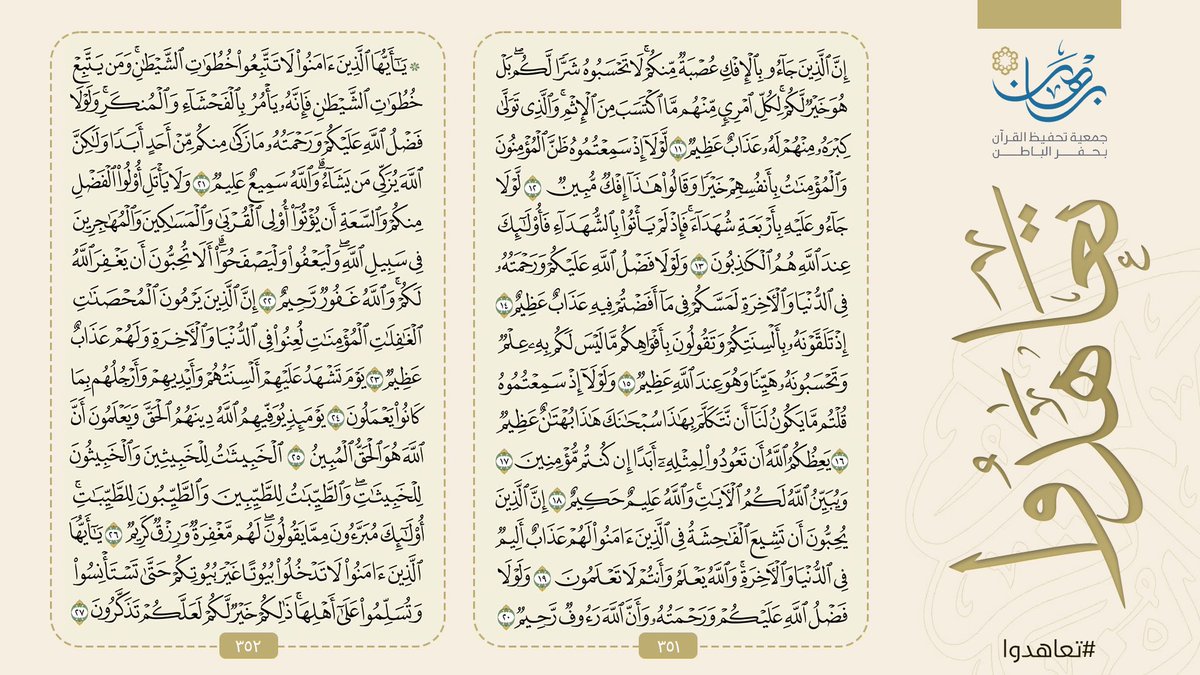 برهان
جمعية تحفيظ القرآن
بحفر الباطن
تعاهدوا
#تعاهدوا
إِنَّ ٱلَّذِينَ جَآءُو بِٱلْإِفْكِ عُصْبَةٌ مِّنكُمْ ۚ لَا تَحْسَبُوهُ شَرًّا لَّكُم ۖ بَلْ
هُوَ خَيْرٌ لَّكُمْ ۚ لِكُلِّ ٱمْرِئٍ مِّنْهُم مَّا ٱكْتَسَبَ مِنَ ٱلْإِثْمِ ۚ وَٱلَّذِى تَوَلَّىٰ
كِبْرَهُۥ مِنْهُمْ لَهُۥ عَذَابٌ عَظِيمٌ ١١ لَّوْلَآ إِذْ سَمِعْتُمُوهُ ظَنَّ ٱلْمُؤْمِنُونَ
وَٱلْمُؤْمِنَٰتُ بِأَنفُسِهِمْ خَيْرًا وَقَالُوا۟ هَٰذَآ إِفْكٌ مُّبِينٌ ١٢ لَّوْلَا
جَآءُو عَلَيْهِ بِأَرْبَعَةِ شُهَدَآءَ ۚ فَإِذْ لَمْ يَأْتُوا۟ بِٱلشُّهَدَآءِ فَأُو۟لَٰٓئِكَ
عِندَ ٱللَّهِ هُمُ ٱلْكَٰذِبُونَ ١٣ وَلَوْلَا فَضْلُ ٱللَّهِ عَلَيْكُمْ وَرَحْمَتُهُۥ
فِى ٱلدُّنْيَا وَٱلْءَاخِرَةِ لَمَسَّكُمْ فِى مَآ أَفَضْتُمْ فِيهِ عَذَابٌ عَظِيمٌ ١٤
إِذْ تَلَقَّوْنَهُۥ بِأَلْسِنَتِكُمْ وَتَقُولُونَ بِأَفْوَاهِكُم مَّا لَيْسَ لَكُم بِهِۦ عِلْمٌ
وَتَحْسَبُونَهُۥ هَيِّنًا وَهُوَ عِندَ ٱللَّهِ عَظِيمٌ ١٥ وَلَوْلَآ إِذْ سَمِعْتُمُوهُ
قُلْتُم مَّا يَكُونُ لَنَآ أَن نَّتَكَلَّمَ بِهَٰذَا سُبْحَٰنَكَ هَٰذَا بُهْتَٰنٌ عَظِيمٌ
١٦ يَعِظُكُمُ ٱللَّهُ أَن تَعُودُوا۟ لِمِثْلِهِۦٓ أَبَدًا إِن كُنتُم مُّؤْمِنِينَ ١٧
وَيُبَيِّنُ ٱللَّهُ لَكُمُ ٱلْءَايَٰتِ ۚ وَٱللَّهُ عَلِيمٌ حَكِيمٌ ١٨ إِنَّ ٱلَّذِينَ
يُحِبُّونَ أَن تَشِيعَ ٱلْفَٰحِشَةُ فِى ٱلَّذِينَ ءَامَنُوا۟ لَهُمْ عَذَابٌ أَلِيمٌ
فِى ٱلدُّنْيَا وَٱلْءَاخِرَةِ ۚ وَٱللَّهُ يَعْلَمُ وَأَنتُمْ لَا تَعْلَمُونَ ١٩ وَلَوْلَا
فَضْلُ ٱللَّهِ عَلَيْكُمْ وَرَحْمَتُهُۥ وَأَنَّ ٱللَّهَ رَءُوفٌ رَّحِيمٌ ٢٠
٣٥١
۞ يَٰٓأَيُّهَا ٱلَّذِينَ ءَامَنُوا۟ لَا تَتَّبِعُوا۟ خُطُوَٰتِ ٱلشَّيْطَٰنِ ۚ وَمَن يَتَّبِعْ
خُطُوَٰتِ ٱلشَّيْطَٰنِ فَإِنَّهُۥ يَأْمُرُ بِٱلْفَحْشَآءِ وَٱلْمُنكَرِ ۚ وَلَوْلَا
فَضْلُ ٱللَّهِ عَلَيْكُمْ وَرَحْمَتُهُۥ مَا زَكَىٰ مِنكُم مِّنْ أَحَدٍ أَبَدًا وَلَٰكِنَّ
ٱللَّهَ يُزَكِّى مَن يَشَآءُ ۗ وَٱللَّهُ سَمِيعٌ عَلِيمٌ ٢١ وَلَا يَأْتَلِ أُو۟لُوا۟ ٱلْفَضْلِ
مِنكُمْ وَٱلسَّعَةِ أَن يُؤْتُوٓا۟ أُو۟لِى ٱلْقُرْبَىٰ وَٱلْمَسَٰكِينَ وَٱلْمُهَٰجِرِينَ
فِى سَبِيلِ ٱللَّهِ ۖ وَلْيَعْفُوا۟ وَلْيَصْفَحُوٓا۟ ۗ أَلَا تُحِبُّونَ أَن يَغْفِرَ ٱللَّهُ
لَكُمْ ۗ وَٱللَّهُ غَفُورٌ رَّحِيمٌ ٢٢ إِنَّ ٱلَّذِينَ يَرْمُونَ ٱلْمُحْصَنَٰتِ
ٱلْغَٰفِلَٰتِ ٱلْمُؤْمِنَٰتِ لُعِنُوا۟ فِى ٱلدُّنْيَا وَٱلْءَاخِرَةِ وَلَهُمْ عَذَابٌ
عَظِيمٌ ٢٣ يَوْمَ تَشْهَدُ عَلَيْهِمْ أَلْسِنَتُهُمْ وَأَيْدِيهِمْ وَأَرْجُلُهُم بِمَا
كَانُوا۟ يَعْمَلُونَ ٢٤ يَوْمَئِذٍ يُوَفِّيهِمُ ٱللَّهُ دِينَهُمُ ٱلْحَقَّ وَيَعْلَمُونَ أَنَّ
ٱللَّهَ هُوَ ٱلْحَقُّ ٱلْمُبِينُ ٢٥ ٱلْخَبِيثَٰتُ لِلْخَبِيثِينَ وَٱلْخَبِيثُونَ
لِلْخَبِيثَٰتِ ۖ وَٱلطَّيِّبَٰتُ لِلطَّيِّبِينَ وَٱلطَّيِّبُونَ لِلطَّيِّبَٰتِ ۚ
أُو۟لَٰٓئِكَ مُبَرَّءُونَ مِمَّا يَقُولُونَ ۖ لَهُم مَّغْفِرَةٌ وَرِزْقٌ كَرِيمٌ ٢٦ يَٰٓأَيُّهَا
ٱلَّذِينَ ءَامَنُوا۟ لَا تَدْخُلُوا۟ بُيُوتًا غَيْرَ بُيُوتِكُمْ حَتَّىٰ تَسْتَأْنِسُوا۟
وَتُسَلِّمُوا۟ عَلَىٰٓ أَهْلِهَا ۚ ذَٰلِكُمْ خَيْرٌ لَّكُمْ لَعَلَّكُمْ تَذَكَّرُونَ ٢٧
٣٥٢